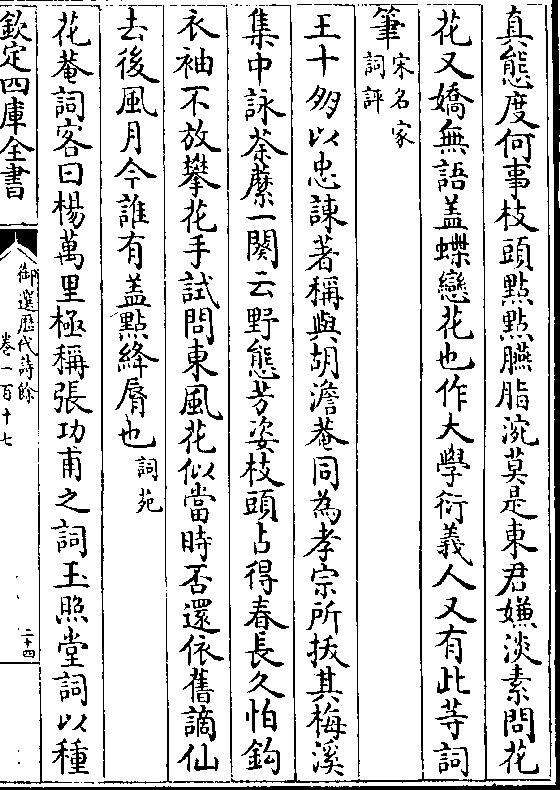 真態度何事枝頭點點臙脂涴莫是東君嫌淡素問花
花又嬌無語蓋蝶戀花也作大學衍義人又有此等詞
筆宋名家
詞評
王十多以忠諫著稱與胡澹菴同為孝宗所拔其梅溪
集中詠荼蘼一闋云野態芳姿枝頭占得春長久怕鈎
衣袖不放攀花手試問東風花似當時否還依舊謫仙
去後風月今誰有蓋點絳唇也詞苑
花菴詞客曰楊萬里極稱張功甫之詞玉照堂詞以種
欽定四庫全書
御選歷代詩餘
卷一百十七
二十四